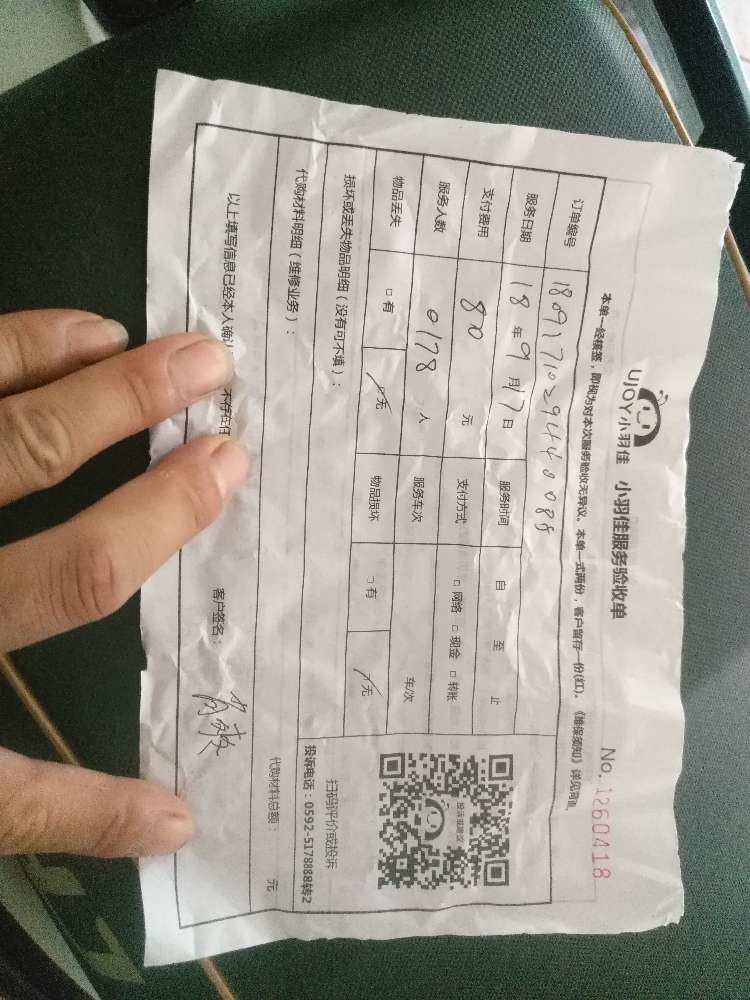 UJOY小羽佳 小羽佳服务验收单
No. 1260418
本单一经接签，即视为对本次服务验收无异议。本单一式两份，客户留存一份(红)。《维保须知》详见背面
订单编号 180917102944008
服务日期 18年9月17日 服务时间 自 至 止
支付费用 80 元 支付方式 □ 网络 □ 现金 □ 转账
服务人数 0178 人 服务车次 车/次
物品丢失 □ 有 □ 无 物品损坏 □ 有 □ 无
损坏或丢失物品明细（没有可不填）：
投诉或建议
扫码评价或投诉
投诉电话：0592-5178888转2
代购材料明细（维修业务）：
代购材料总额： 元
以上填写信息已经本人确认 不存在任
客户签名：